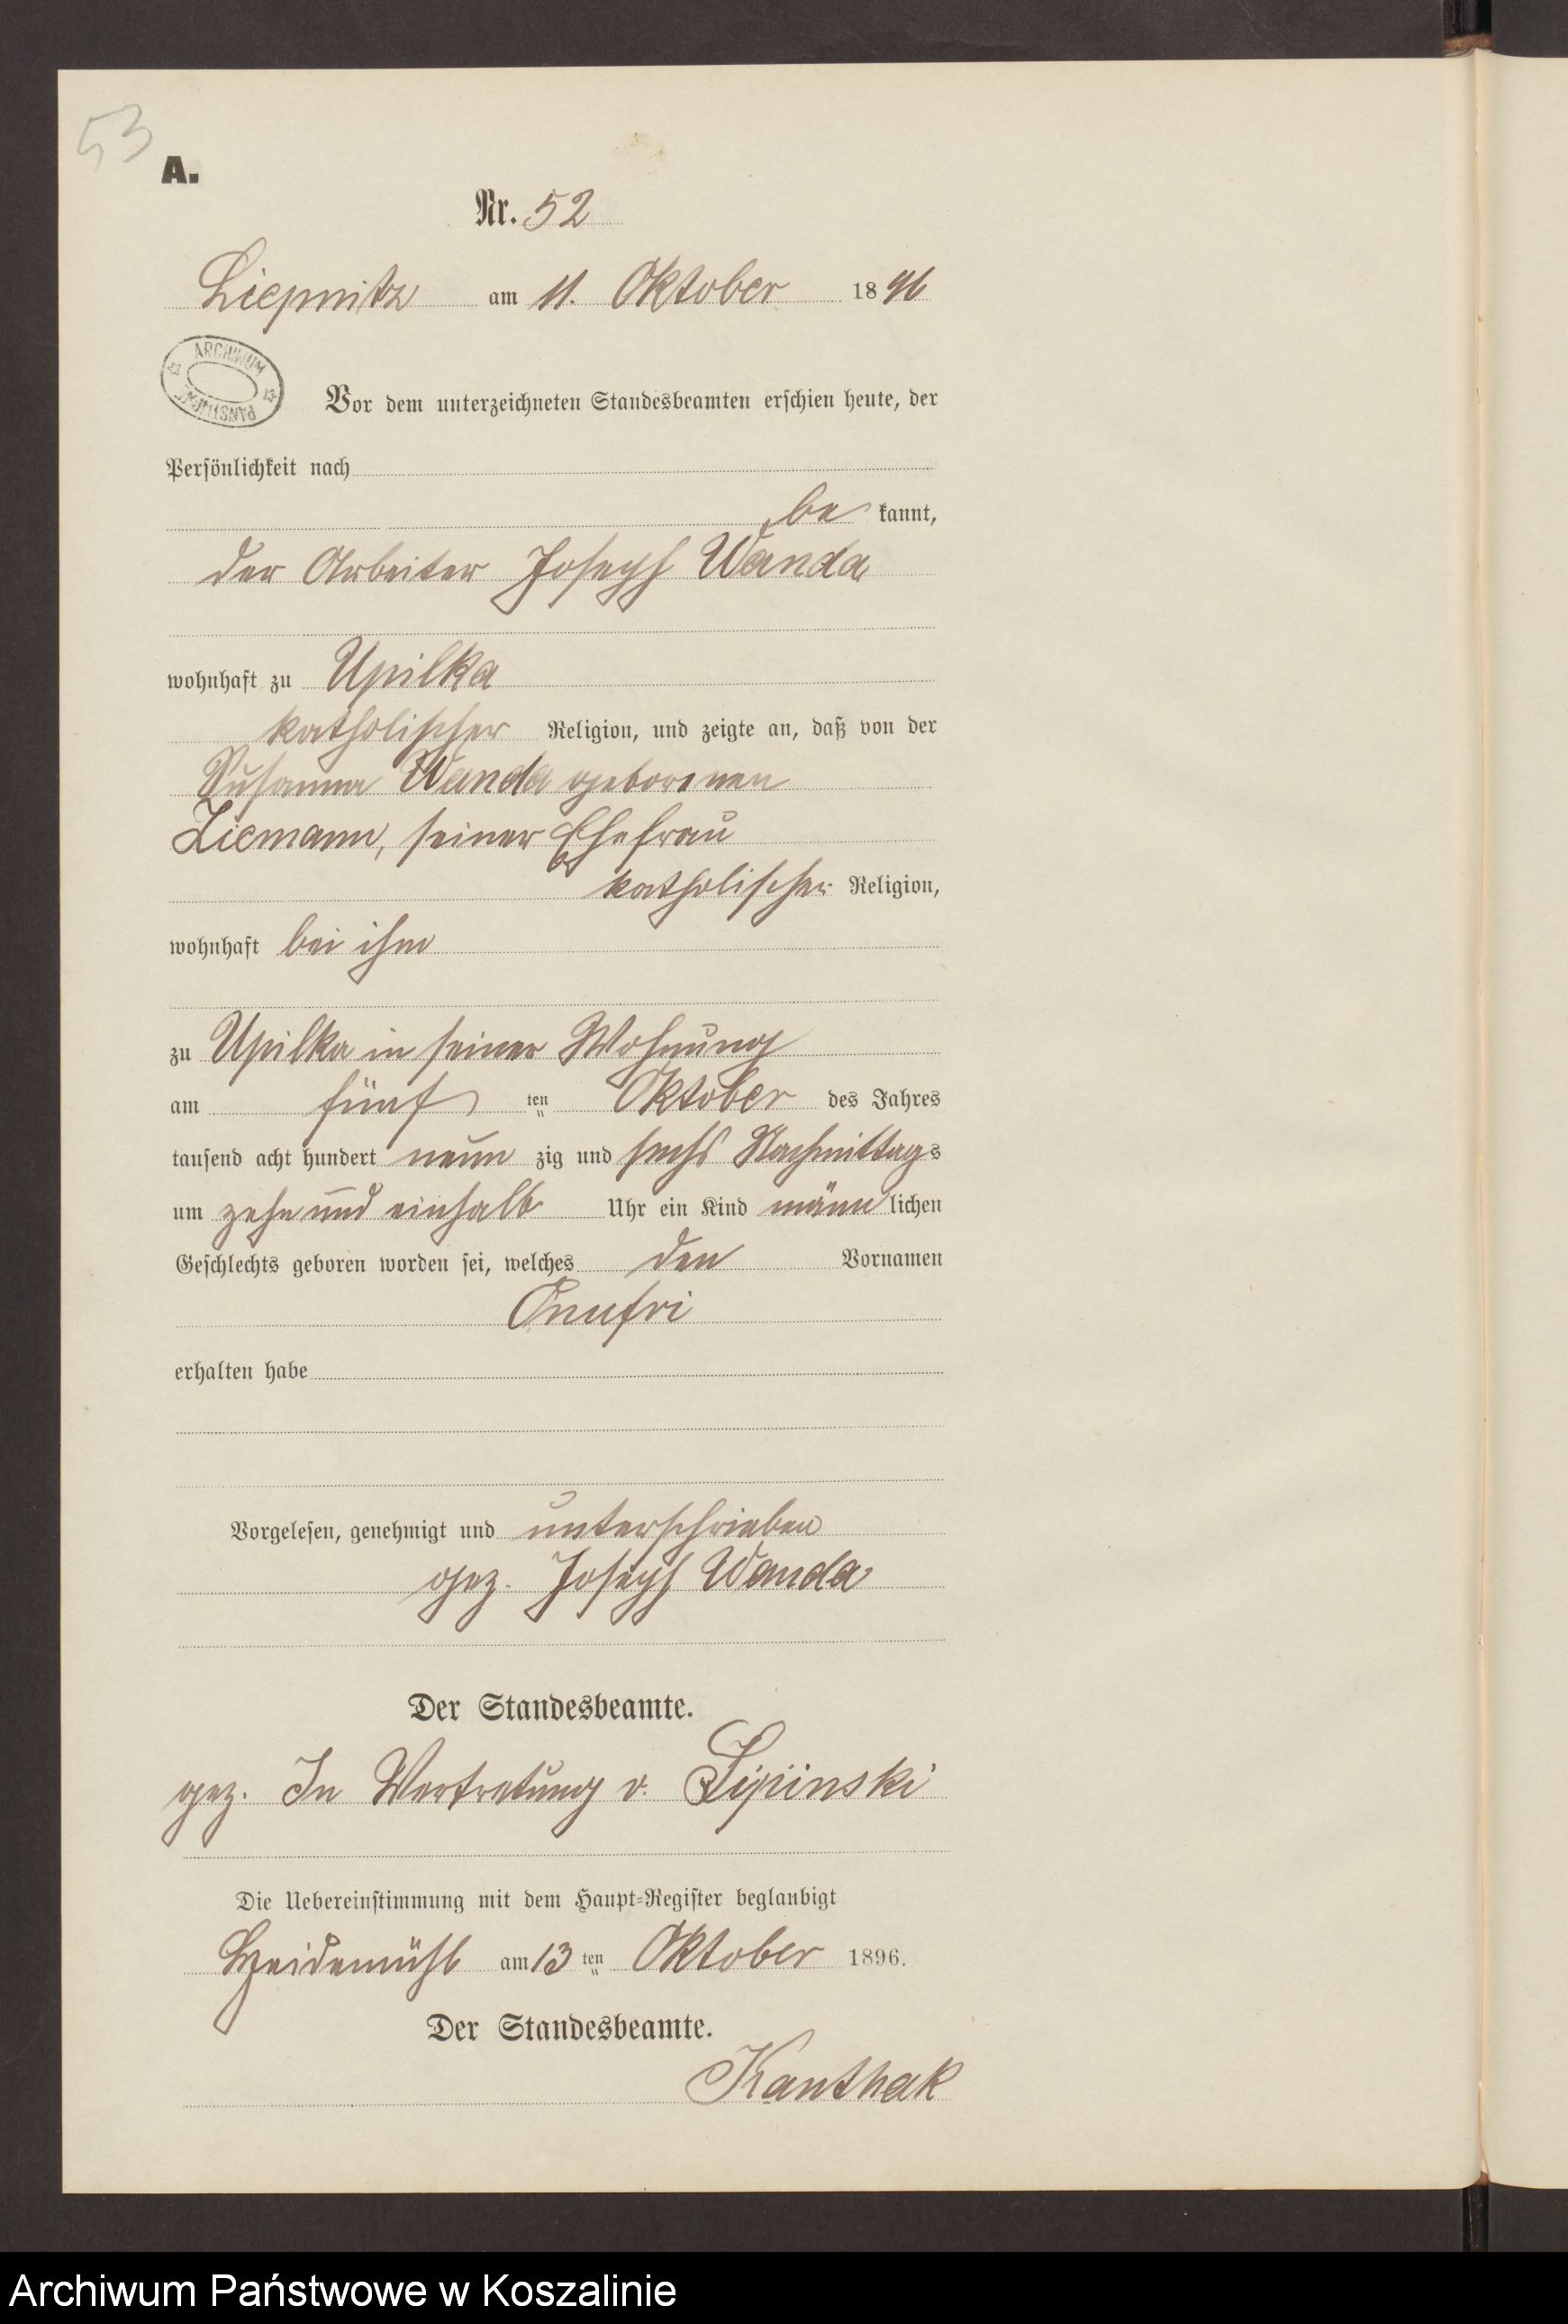 53
A.
Nr. 52
Liepnitz am 11. Oktober 1896
ARCHIWUM PAŃSTWOWE
Vor dem unterzeichneten Standesbeamten erschien heute, der
Persönlichkeit nach
be kannt,
der Arbeiter Joseph Wanda
wohnhaft zu Upilka
katholischer Religion, und zeigte an, daß von der
Susanna Wanda geborenen
Ziemann, seiner Ehefrau
katholischer Religion,
wohnhaft bei ihm
zu Upilka in seiner Wohnung
am fünf ten Oktober des Jahres
tausend acht hundert neun zig und sechs Nachmittags
um zehn und einhalb Uhr ein Kind männ lichen
Geschlechts geboren worden sei, welches den Vornamen
Onufri
erhalten habe
Vorgelesen, genehmigt und unterschrieben
gez. Joseph Wanda
Der Standesbeamte.
gez. In Vertretung v. Lipinski
Die Uebereinstimmung mit dem Haupt-Register beglaubigt
Heidemühl am 13 ten Oktober 1896.
Der Standesbeamte.
Kanthak
Archiwum Państwowe w Koszalinie